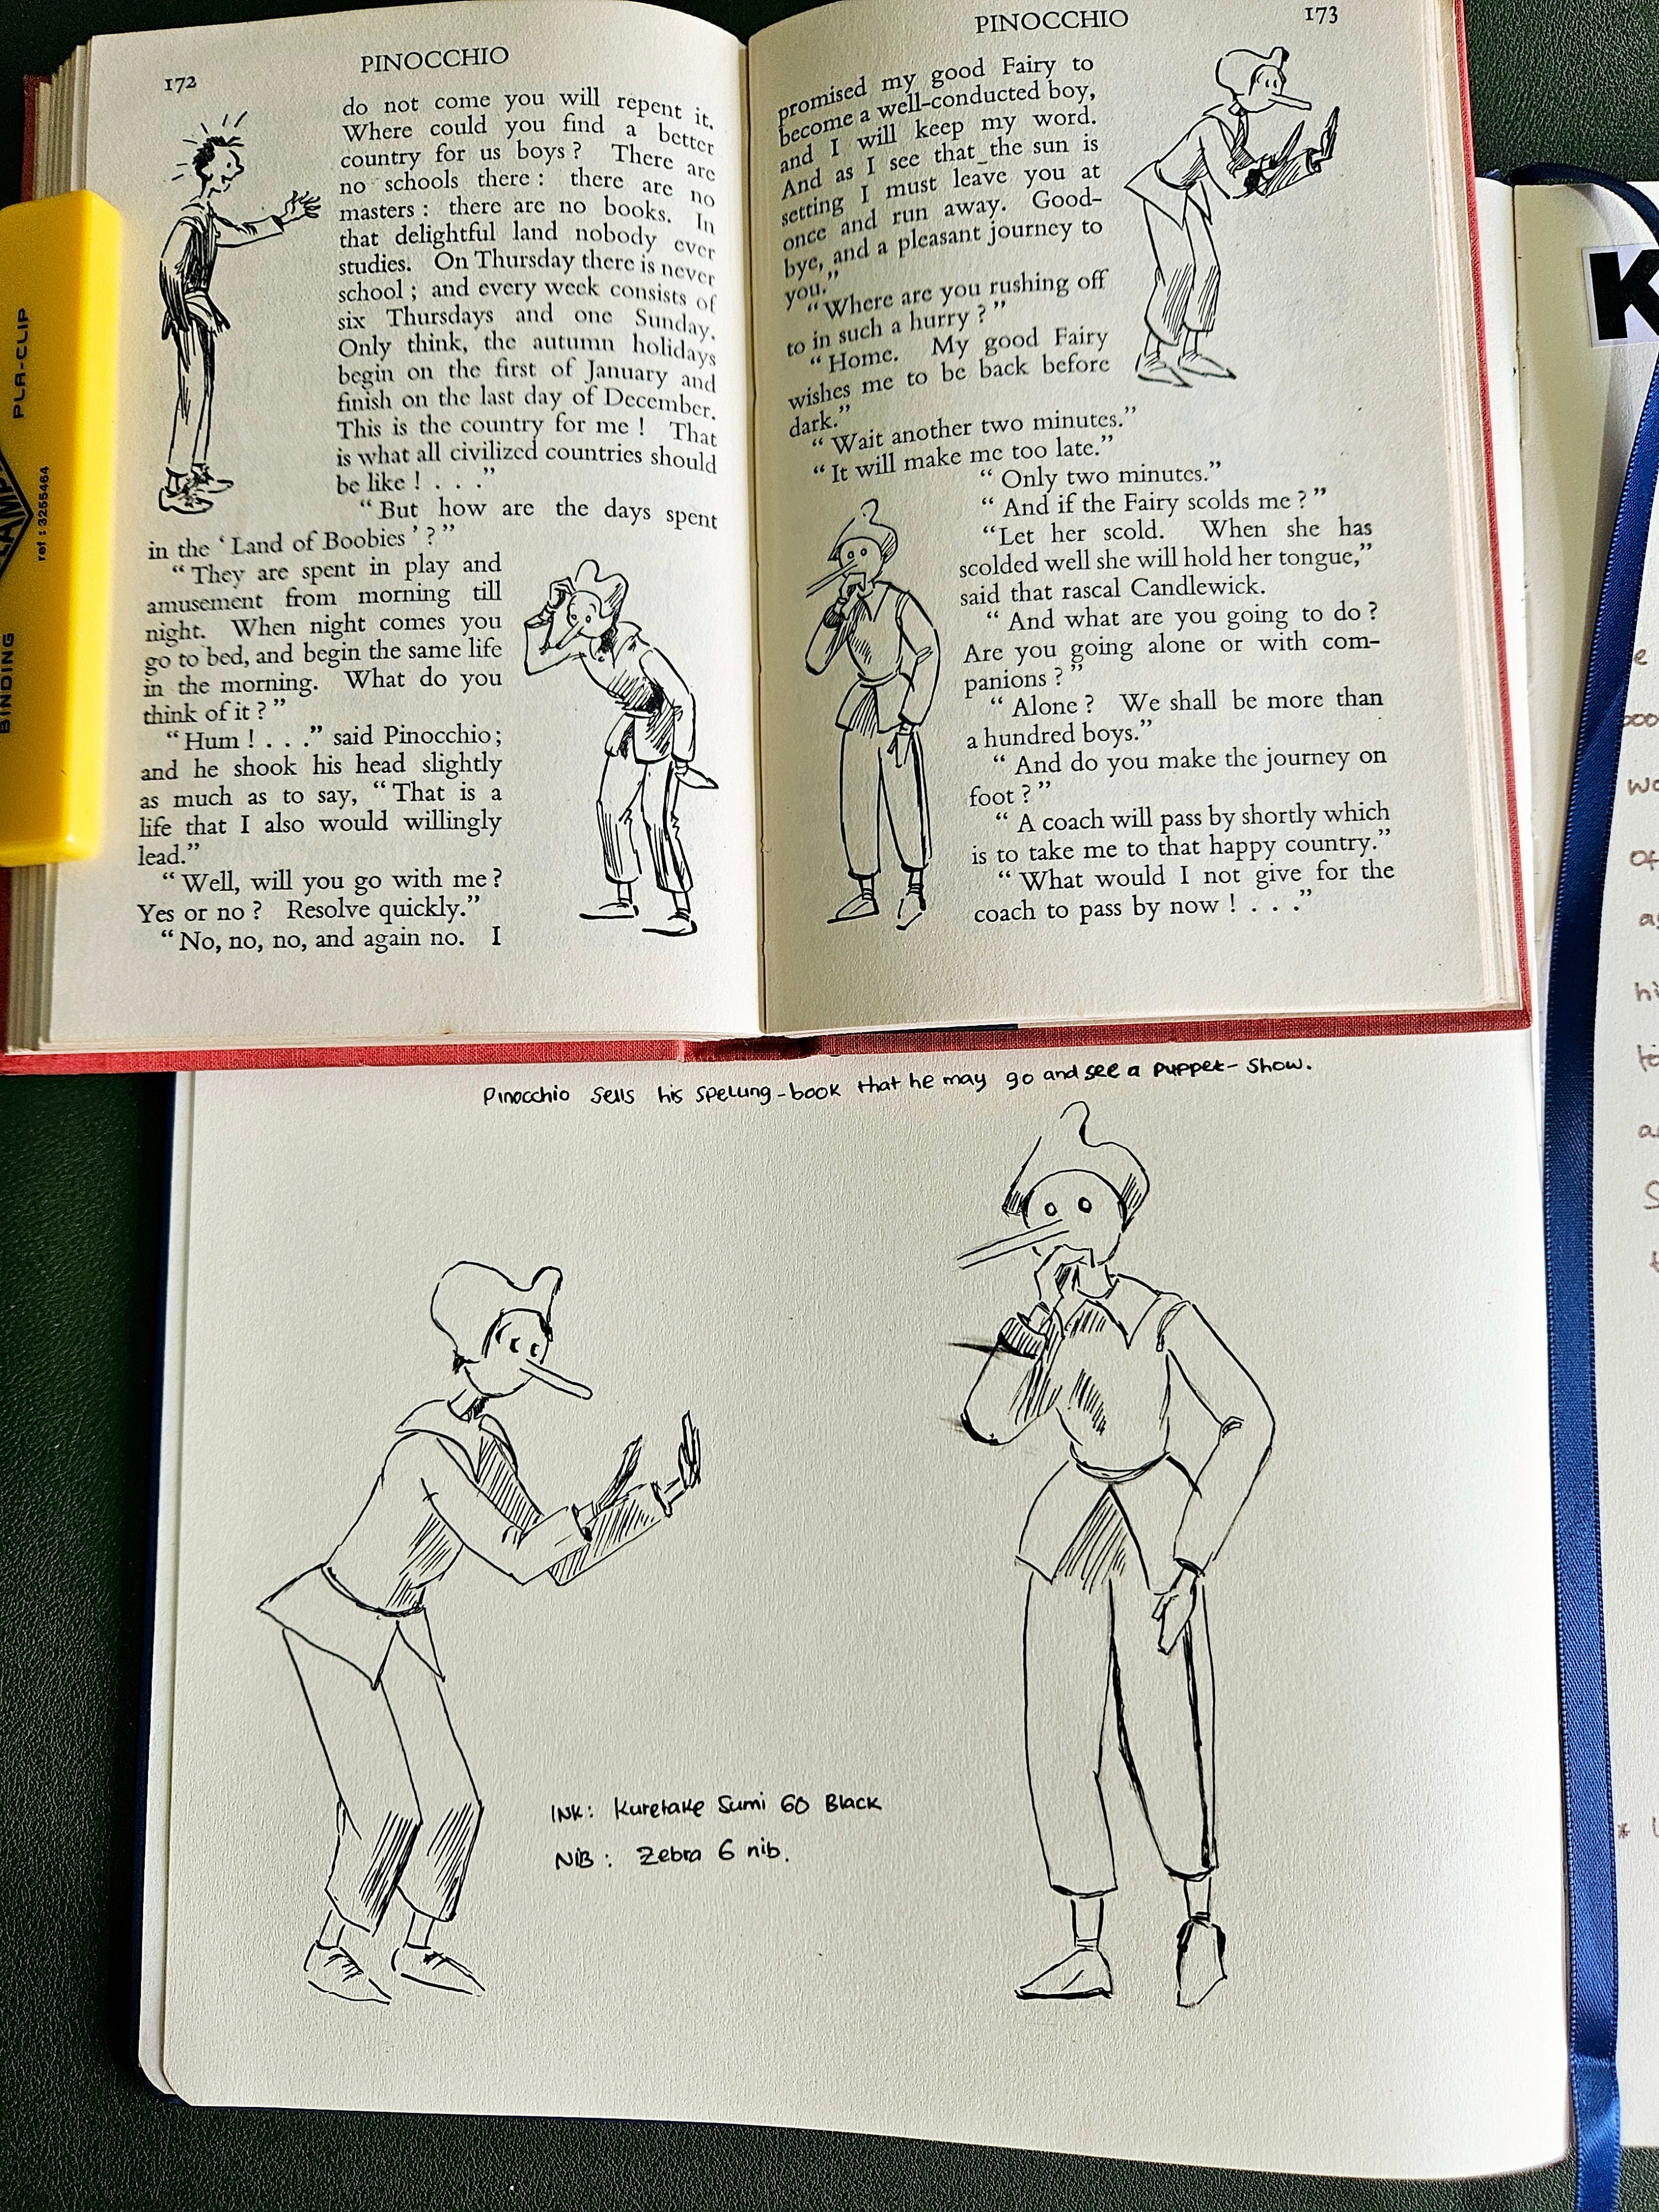 172
PINOCCHIO
do not come you will repent it.
Where could you find a better
country for us boys? There are
no schools there: there are no
masters: there are no books. In
that delightful land nobody ever
studies. On Thursday there is never
school; and every week consists of
six Thursdays and one Sunday.
Only think, the autumn holidays
begin on the first of January and
finish on the last day of December.
This is the country for me! That
is what all civilized countries should
be like! . . .”
“But how are the days spent
in the ‘Land of Boobies’?”
“They are spent in play and
amusement from morning till
night. When night comes you
go to bed, and begin the same life
in the morning. What do you
think of it?”
“Hum! . . .” said Pinocchio;
and he shook his head slightly
as much as to say, “That is a
life that I also would willingly
lead.”
“Well, will you go with me?
Yes or no? Resolve quickly.”
“No, no, no, and again no. I
PINOCCHIO
173
promised my good Fairy to
become a well-conducted boy,
and I will keep my word.
And as I see that the sun is
setting I must leave you at
once and run away. Good-
bye, and a pleasant journey to
you.”
“Where are you rushing off
to in such a hurry?”
“Home. My good Fairy
wishes me to be back before
dark.”
“Wait another two minutes.”
“It will make me too late.”
“Only two minutes.”
“And if the Fairy scolds me?”
“Let her scold. When she has
scolded well she will hold her tongue,”
said that rascal Candlewick.
“And what are you going to do?
Are you going alone or with com-
panions?”
“Alone? We shall be more than
a hundred boys.”
“And do you make the journey on
foot?”
“A coach will pass by shortly which
is to take me to that happy country.”
“What would I not give for the
coach to pass by now! . . .”
PLA-CLIP
ref: 3255464
BINDING
K
Pinocchio sells his spelling-book that he may go and see a puppet-show.
INK: Kuretake Sumi 60 Black
NIB: Zebra G nib.